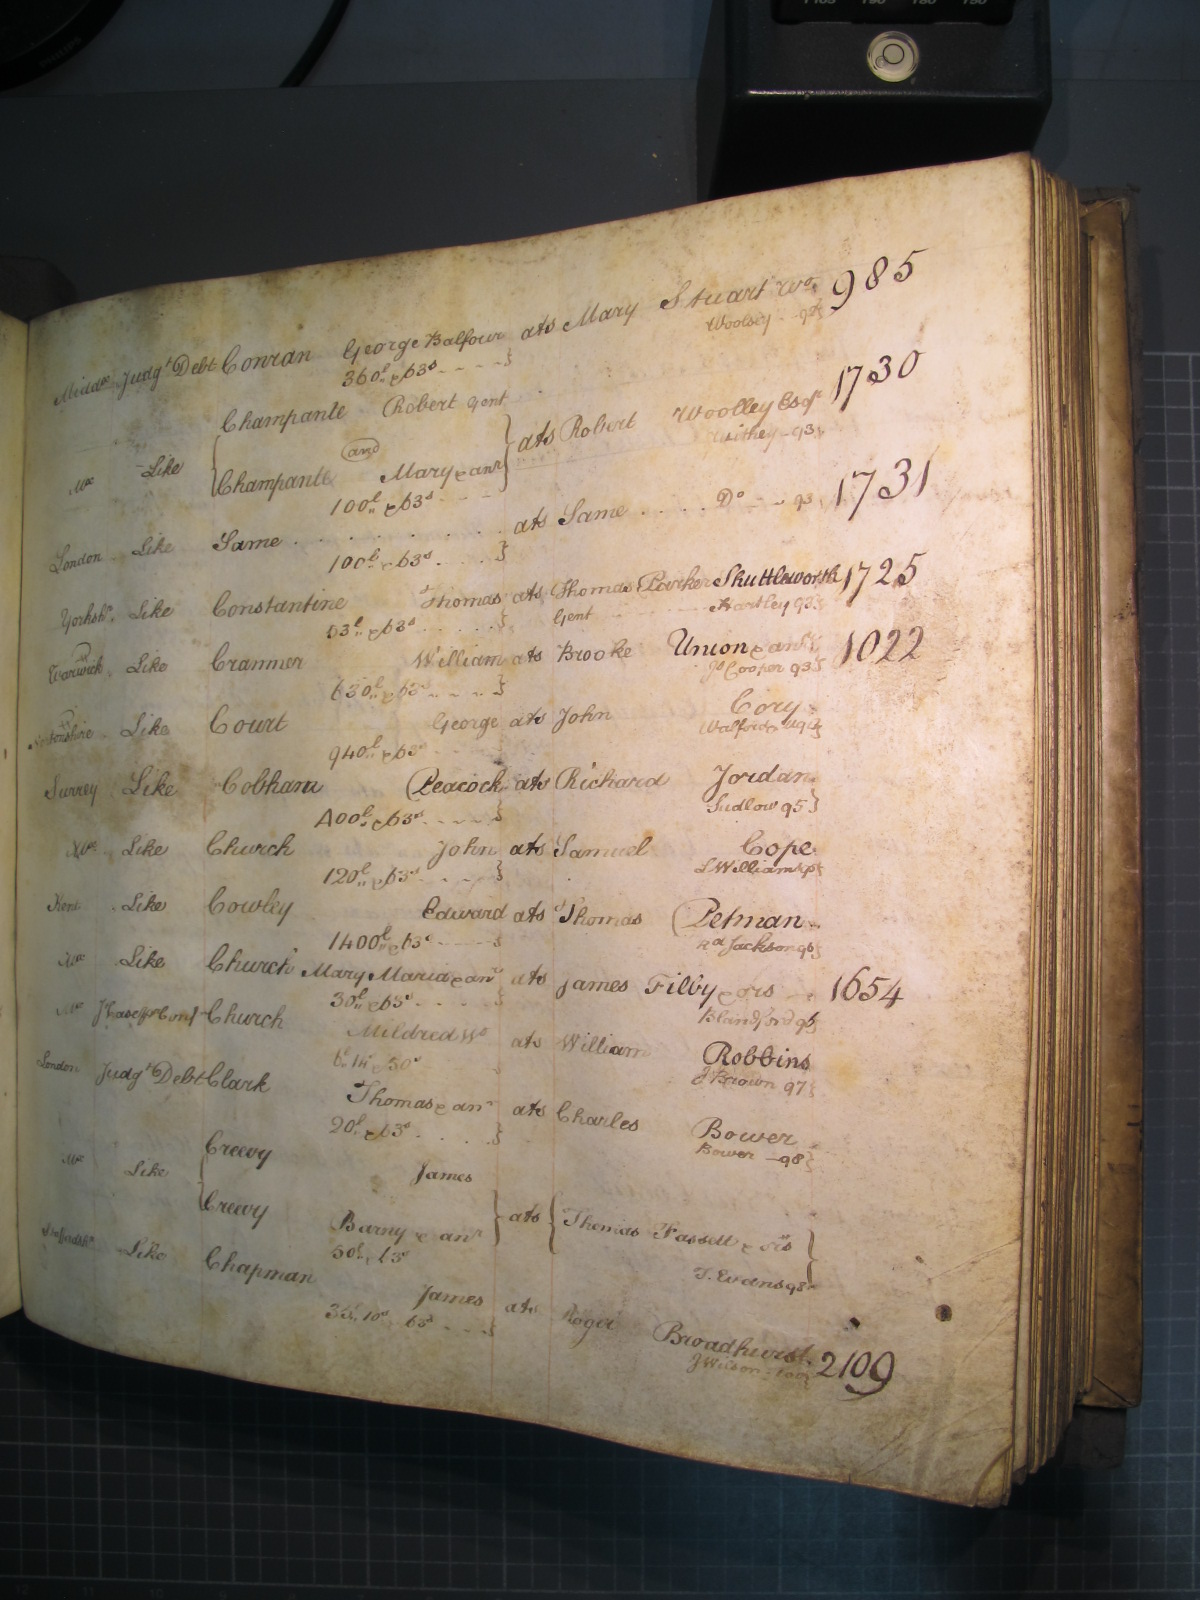 Midd.x Judg.t Debt Conran George Balfour ats Mary Stuart W.o 985
360.l & 63.s Woolsey 92
Champante Robert Gent
M.x Like and ats Robert Woolley Esq.r 1730
Champante Mary & an.r Withey 93
100.l & 63.s
London Like Same ats Same D.o 93 1731
100.l & 63.s
Yorksh. Like Constantine Thomas ats Thomas Parker Shuttleworth 1725
63.s Gent Hartley 93
Warwick Like Cranmer William ats Brooke Union & an.r 1022
630.l & 63.s Cooper 93
Like Court George ats John Cory
940.l & 63.s Walford
Surrey Like Cobham Peacock ats Richard Jordan
400.l & 63.s Ludlow 95
M.x Like Church John ats Samuel Cope
120.l & 63.s Williams
Kent Like Cowley Edward ats Thomas Petman
1400.l & 63.s R.d Jackson 96
M.x Like Church Mary Maria & an.r ats James Filby & ors 1654
30.l & 63.s Blandford
M.x Church Mildred W.o ats William Robbins
50.s J Brown 97
London Judg.t Debt Clark Thomas & an.r ats Charles Bower
20.l & 63.s Bower 98
Creevy James
M.x Like ats Thomas Fassett & ors
Creevy Barny & an.r
50.l 63.s T. Evans 98
Staffordsh.r Like Chapman James ats Roger Broadhurst 2109
10.s 63.s J Wilson 100